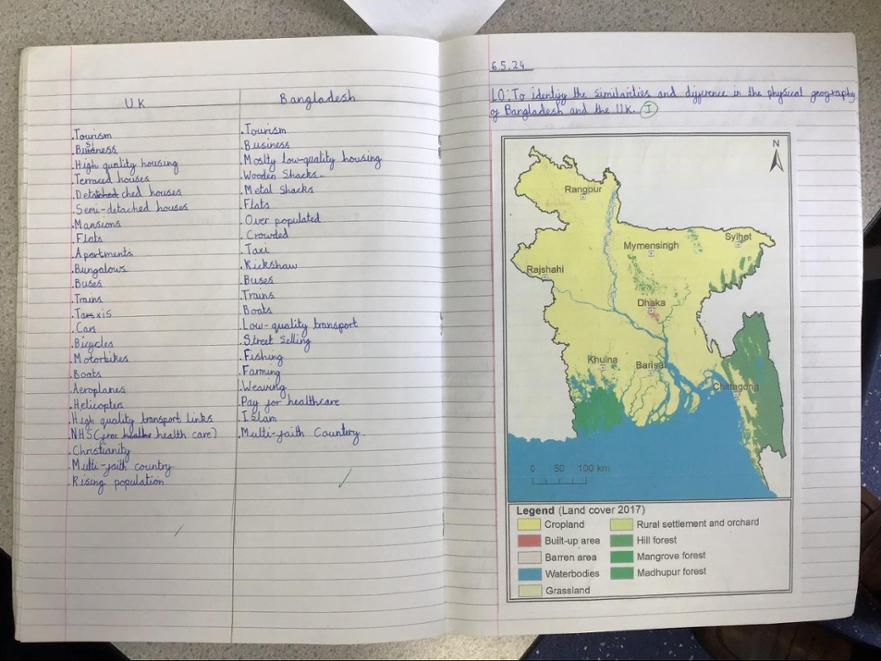 UK
.Tourism
.Business
.High quality housing
.Terraced houses
.Detached houses
.Semi-detached houses
.Mansions
.Flats
.Apartments
.Bungalows
.Buses
.Trains
.Taxis
.Cars
.Bicycles
.Motorbikes
.Boats
.Aeroplanes
.Helicopters
.High quality transport links
.NHS (free health care)
.Christianity
.Multi-faith country
.Rising population
Bangladesh
.Tourism
.Business
.Moslty low-quality housing
.Wooden Shacks
.Metal Shacks
.Flats
.Over populated
.Crowded
.Taxi
.Rickshaw
.Buses
.Trains
.Boats
.Low-quality transport
.Street Selling
.Fishing
.Farming
.Weaving
.Pay for healthcare
.Islam
.Multi-faith Country.
6.5.24
LO: To identify the similarities and difference in the physical geography
of Bangladesh and the U.K. I
N
Rangpur
Mymensingh
Sylhet
Rajshahi
Dhaka
Khulna
Barisal
Chittagong
0 50 100 km
Legend (Land cover 2017)
Cropland
Rural settlement and orchard
Built-up area
Hill forest
Barren area
Mangrove forest
Waterbodies
Madhupur forest
Grassland